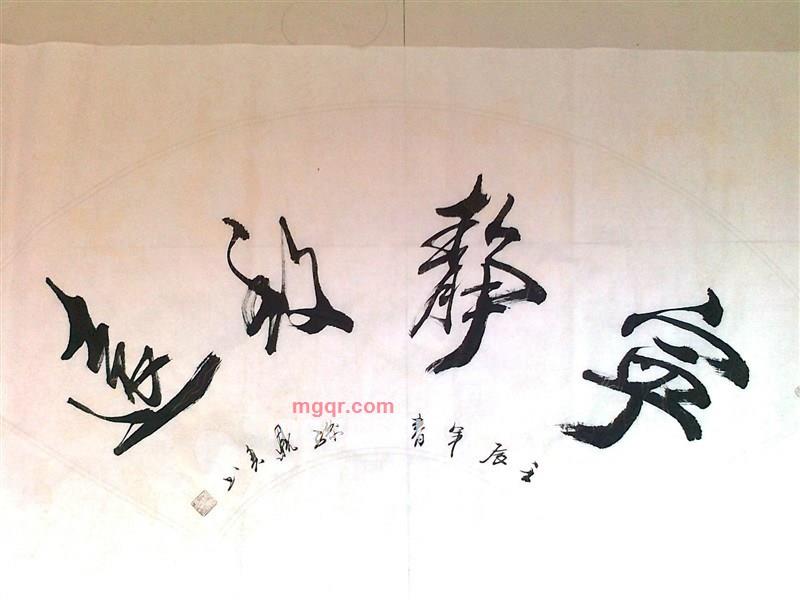 寧静致遠
壬辰年春
mgqr.com